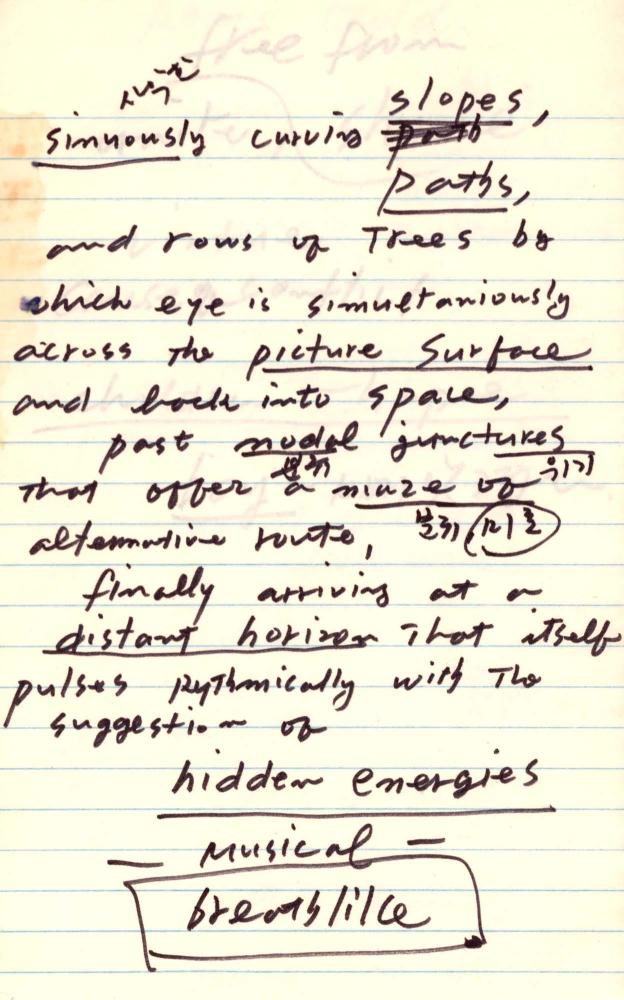 slopes,
sinuously curving path
paths,
and rows of Trees by
which eye is simultaniously
across the picture Surface
and back into space,
past nodal junctures
위기
that offer a maze of
미로
alternative route,
finally arriving at a
distant horizon That itself
pulses rythmically with The
suggestion of
hidden energies
— Musical —
breathlike